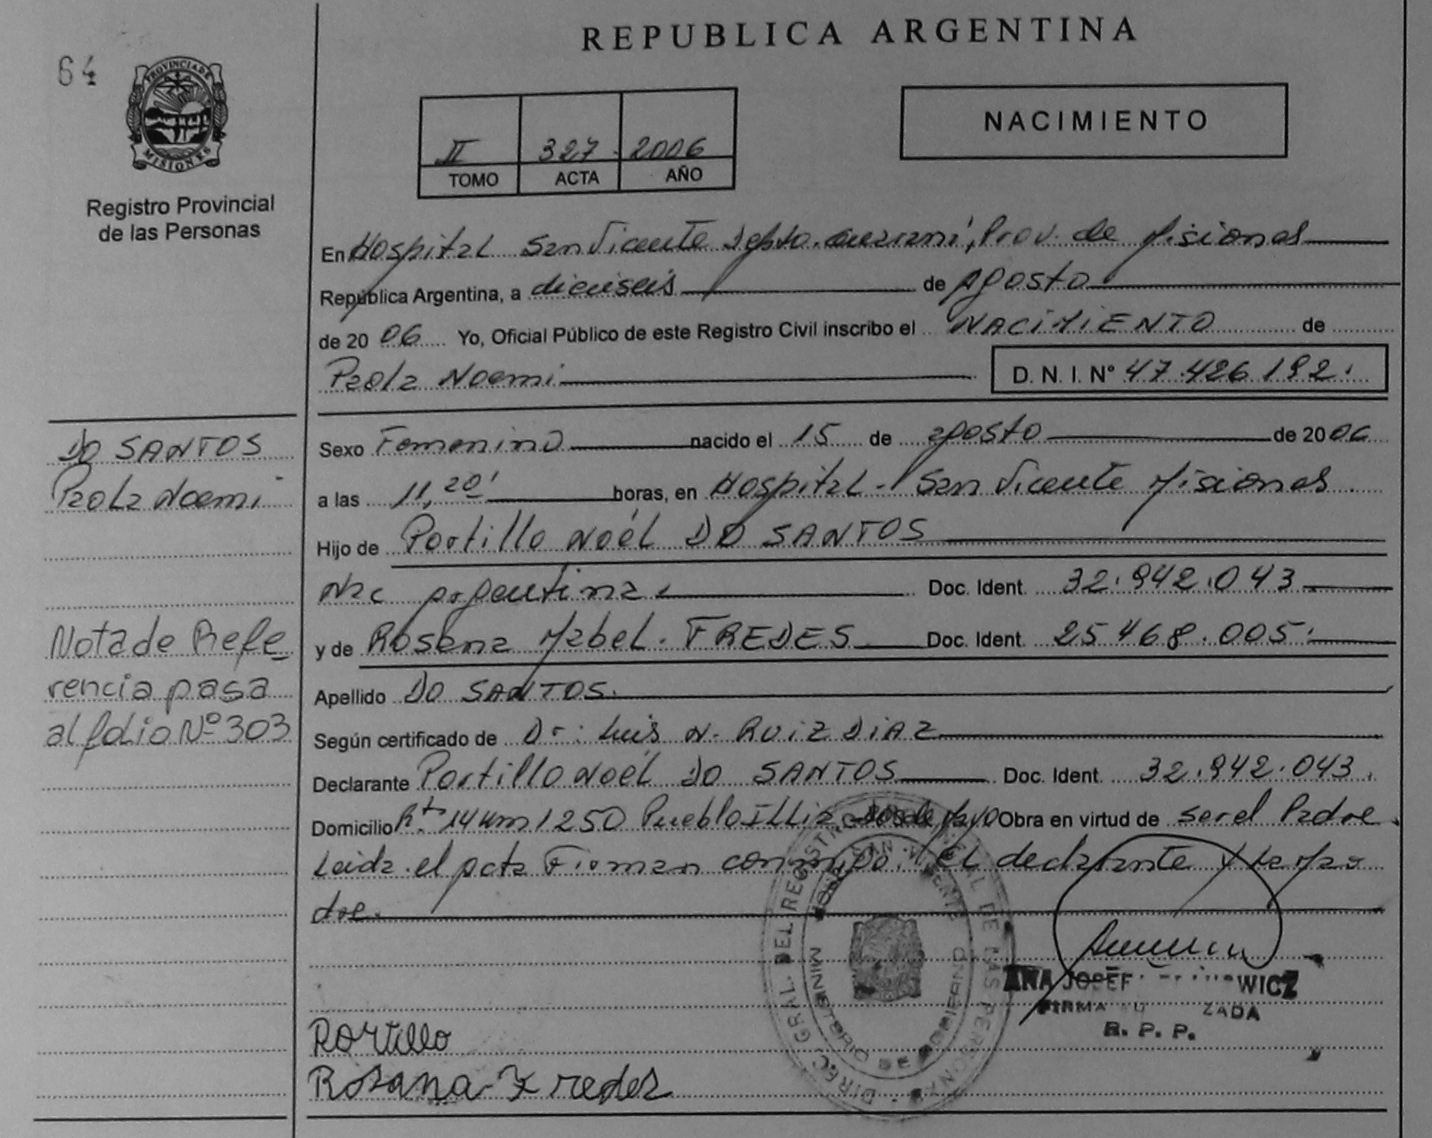 REPUBLICA ARGENTINA
64
PROVINCIA DE
MISIONES
Registro Provincial
de las Personas
II 327 2006
TOMO ACTA AÑO
NACIMIENTO
En Hospital San Vicente Depto. Guaraní, Prov. de Misiones
República Argentina, a dieciseis de Agosto
de 2006 Yo, Oficial Público de este Registro Civil inscribo el NACIMIENTO de
Paola Noemi D. N. I. N° 47.426.192.
DO SANTOS
Paola Noemi
Sexo Femenino nacido el 15 de agosto de 2006
a las 11,20' horas, en Hospital - San Vicente Misiones
Hijo de Portillo Noél DO SANTOS
Nac argentina Doc. Ident. 32.942.043
y de Rosana Mabel. FREDES Doc. Ident. 25468.005.
Nota de Refe
rencia pasa
al folio Nº 303
Apellido DO SANTOS.
Según certificado de Dr: Luis N. RUIZ DIAZ
Declarante Portillo Noél DO SANTOS Doc. Ident. 32.942.043.
Domicilio Rta 14 Km 1250 Pueblo Illia Dos de Mayo Obra en virtud de ser el Padre.
Leida el acta Firman conmigo. El declarante y la Ma
dre.
DIREC. GRAL. DEL REGISTRO PROVINCIAL DE LAS PERSONAS
MINISTERIO DE GOBIERNO
ANA
WICZ
FIRMA
R. P. P.
Portillo
Rosana Fredes